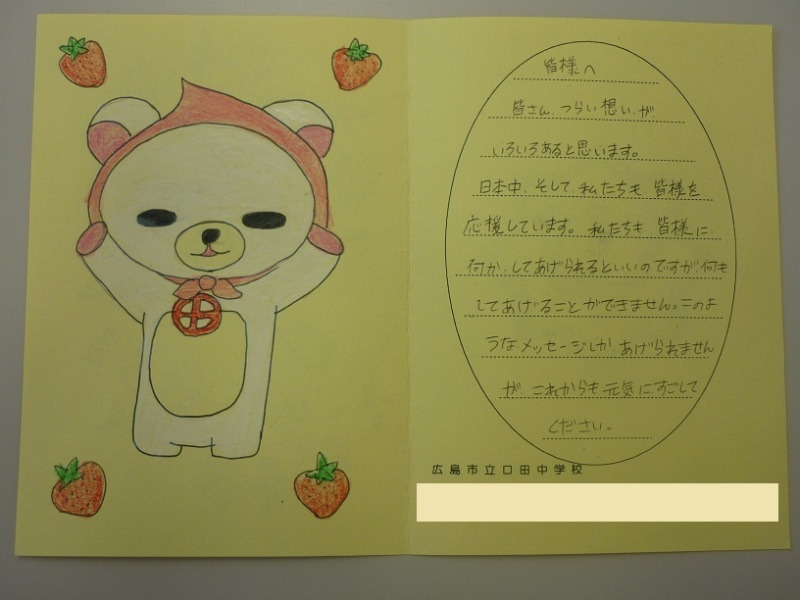 皆様へ
皆さん、つらい想いが
いろいろあると思います。
日本中、そして、私たちも、皆様を
応援しています。私たちも 皆様に
何か、してあげられるといいのですが、何も
してあげることができません。このよ
うなメッセージしか あげられません
が、これからも 元気に、すごして
ください。
広島市立口田中学校